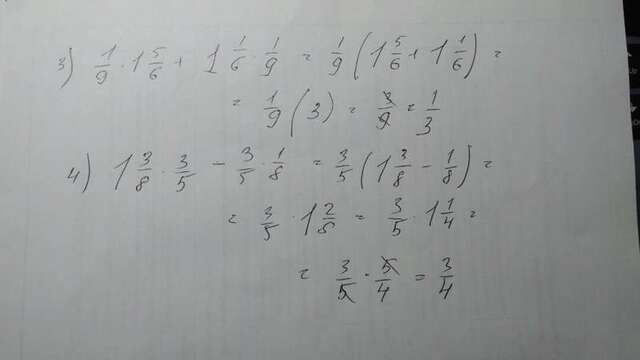 3) 1/9 · 1 5/6 + 1 1/6 · 1/9 = 1/9 (1 5/6 + 1 1/6) =
= 1/9 (3) = 3/9 = 1/3
4) 1 3/8 · 3/5 - 3/5 · 1/8 = 3/5 (1 3/8 - 1/8) =
= 3/5 · 1 2/8 = 3/5 · 1 1/4 =
= 3/5 · 5/4 = 3/4